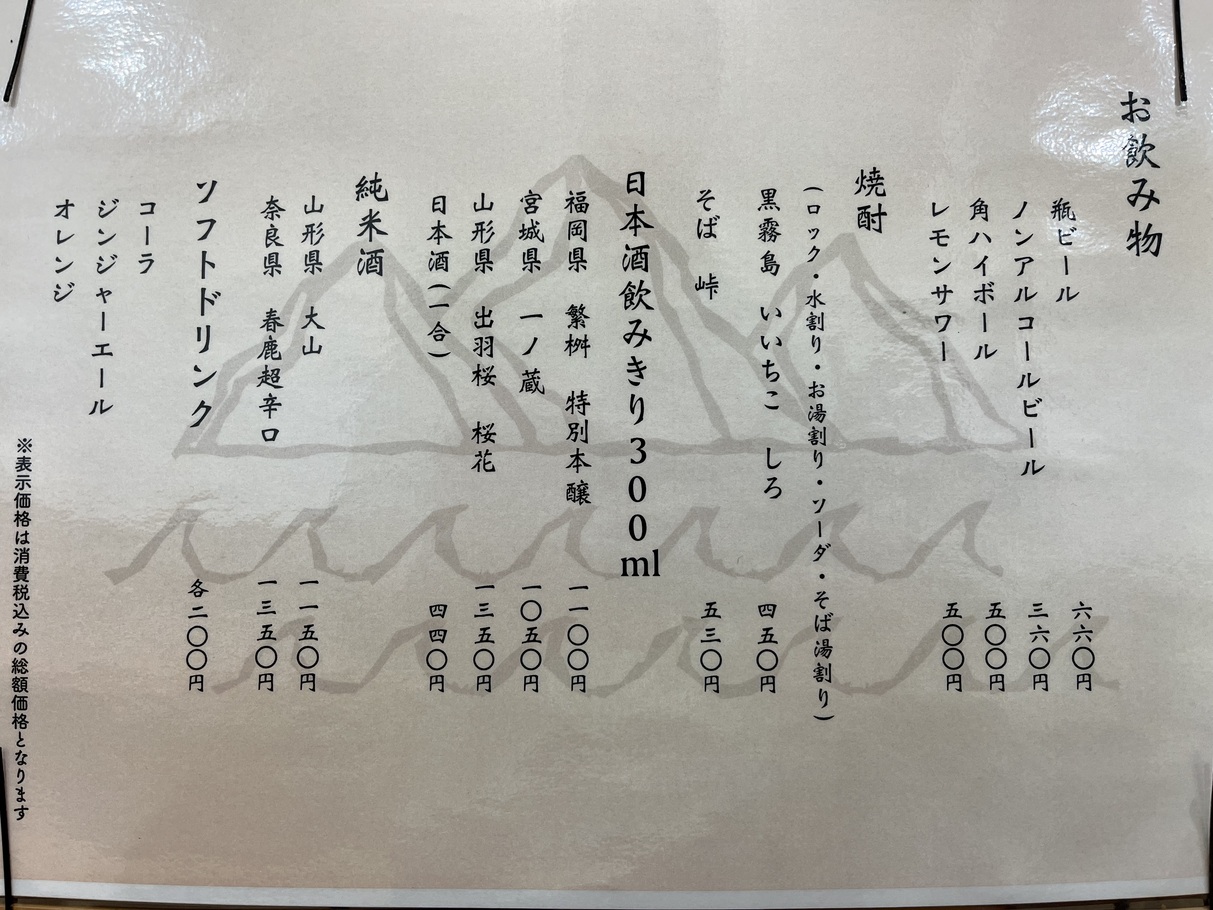 お飲み物
瓶ビール 六六〇円
ノンアルコールビール 三六〇円
角ハイボール 五〇〇円
レモンサワー 五〇〇円
焼酎
(ロック・水割り・お湯割り・ソーダ・そば湯割り)
黒霧島 いいちこ しろ 四五〇円
そば 峠 五三〇円
日本酒飲みきり300ml
福岡県 繁桝 特別本醸 一一〇〇円
宮城県 一ノ蔵 一〇五〇円
山形県 出羽桜 桜花 一三五〇円
日本酒(一合) 四四〇円
純米酒
山形県 大山 一一五〇円
奈良県 春鹿超辛口 一三五〇円
ソフトドリンク 各二〇〇円
コーラ
ジンジャーエール
オレンジ
※表示価格は消費税込みの総額価格となります